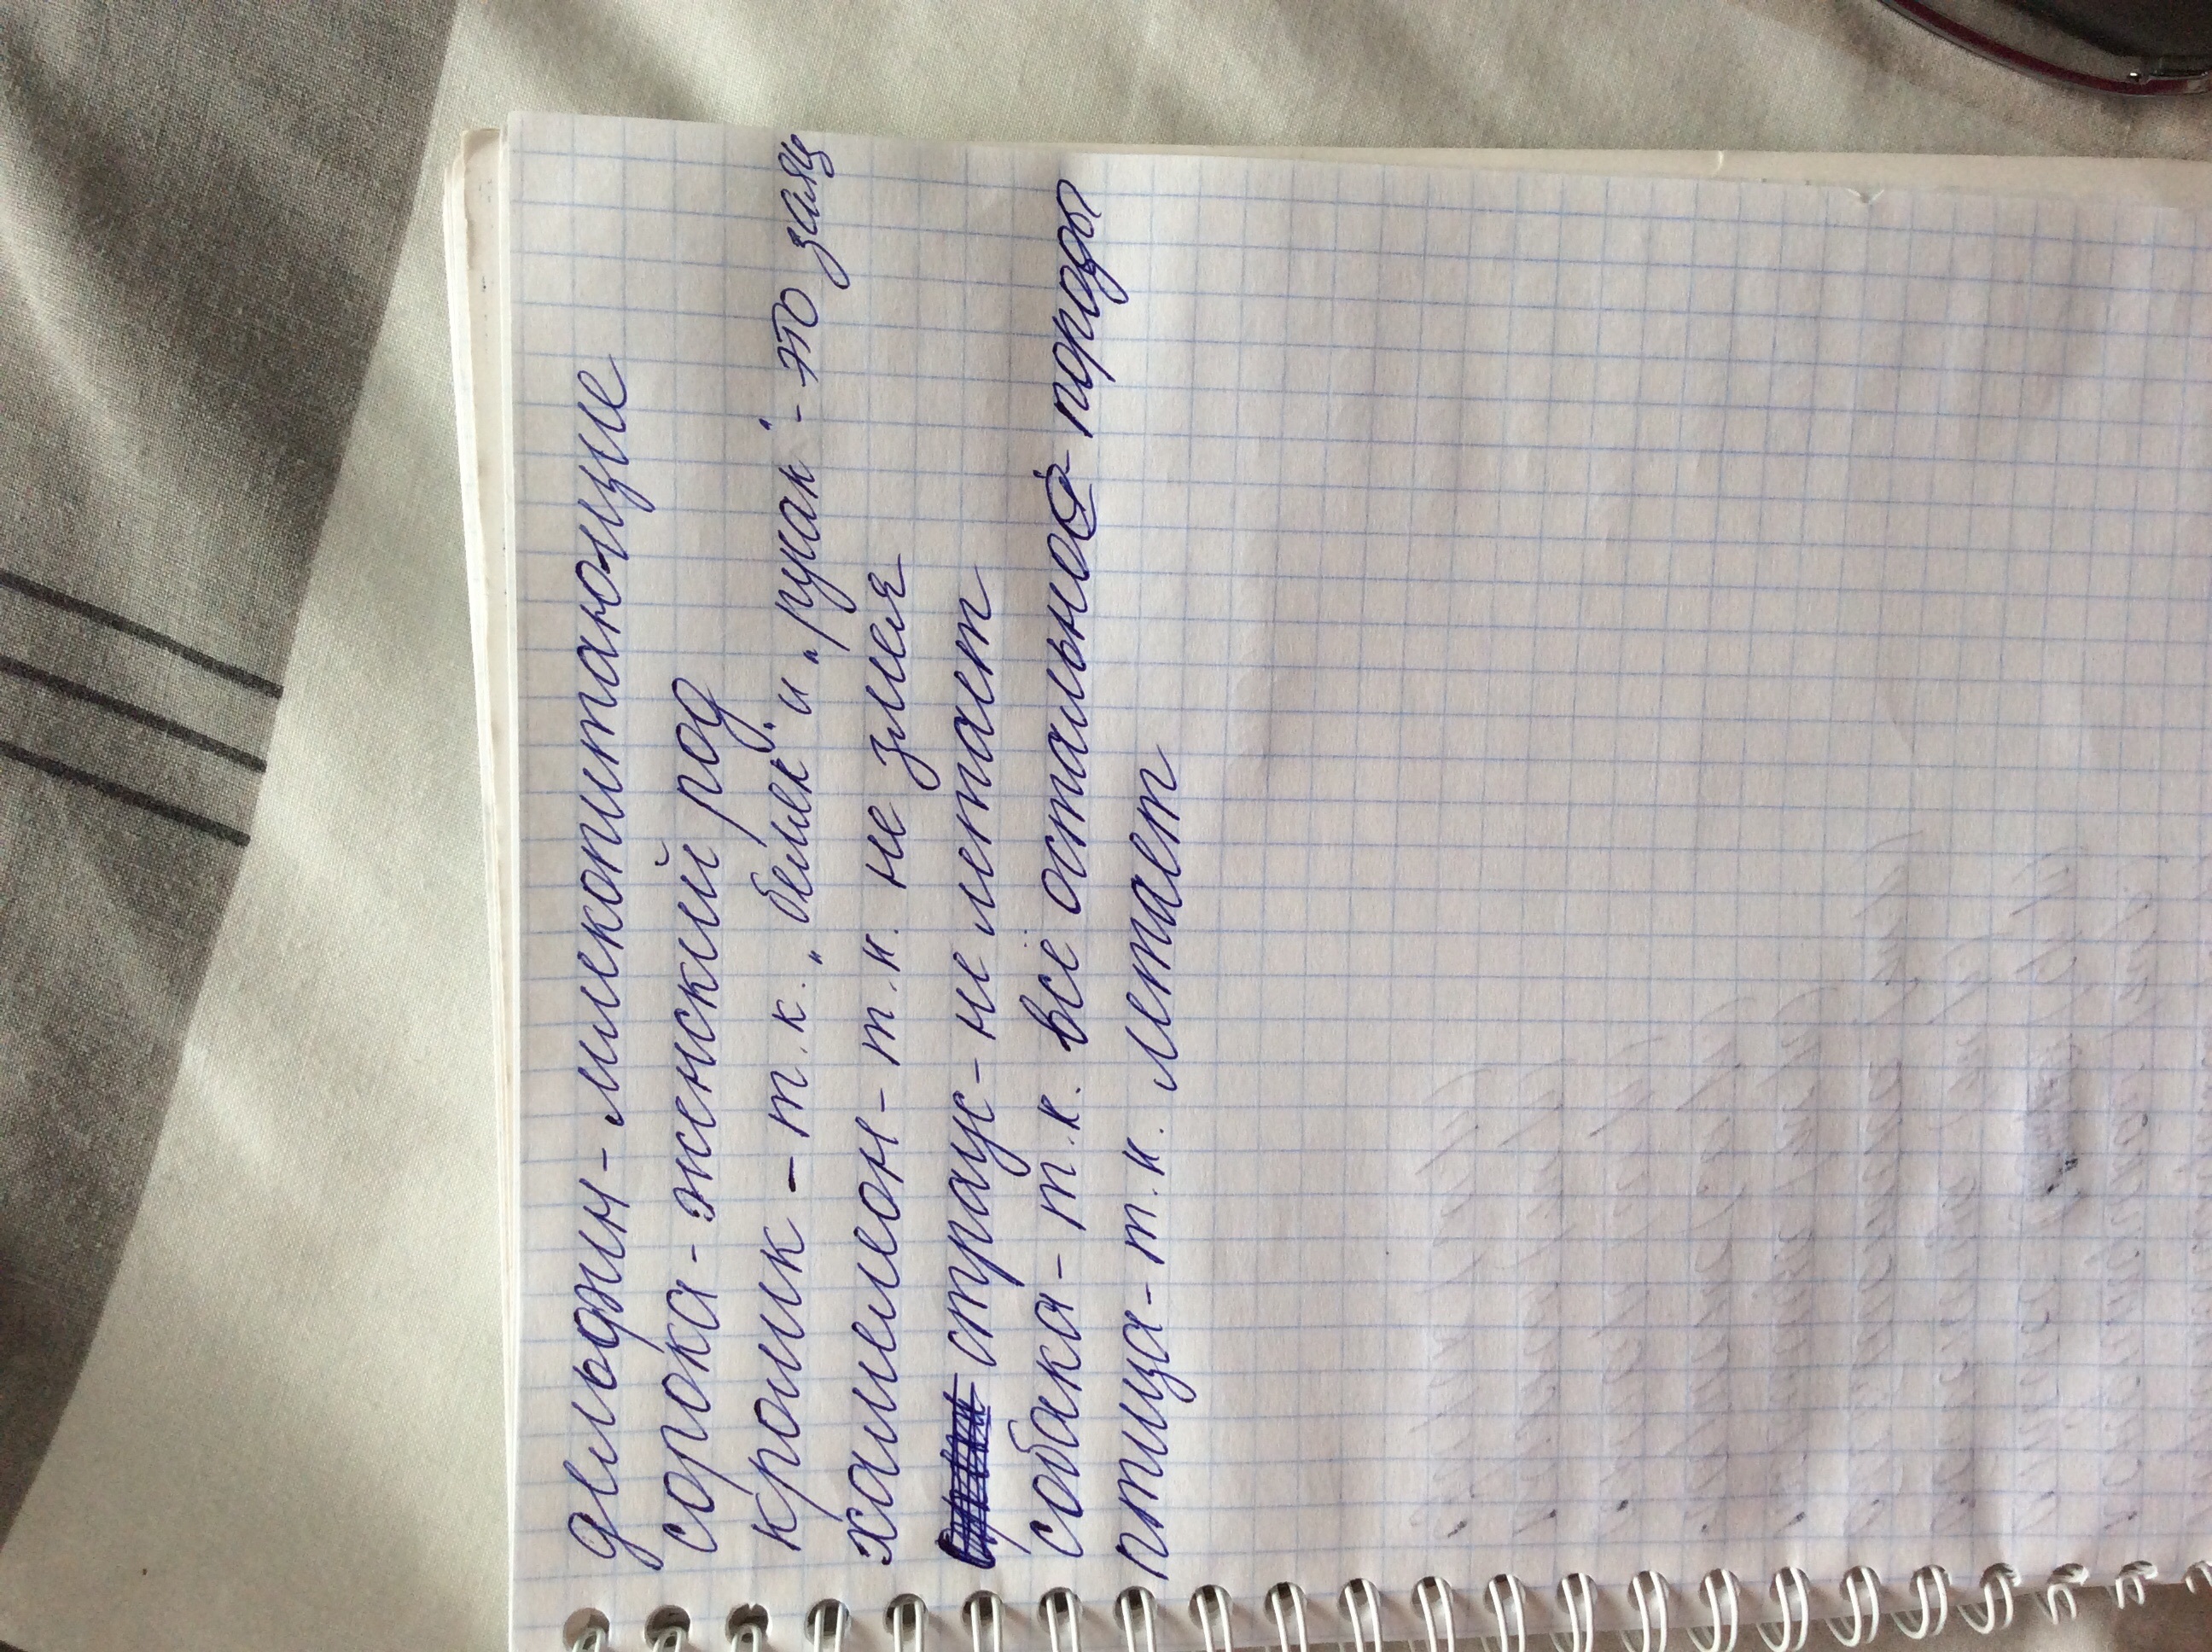 дельфин - млекопитающие
сорока - женский род
кролик - т.к. "беляк" и "русак" - это заяц
хамелеон - т.к. не змея
страус - не летает
собака - т.к. всё остальное породы
птица - т.к. летает